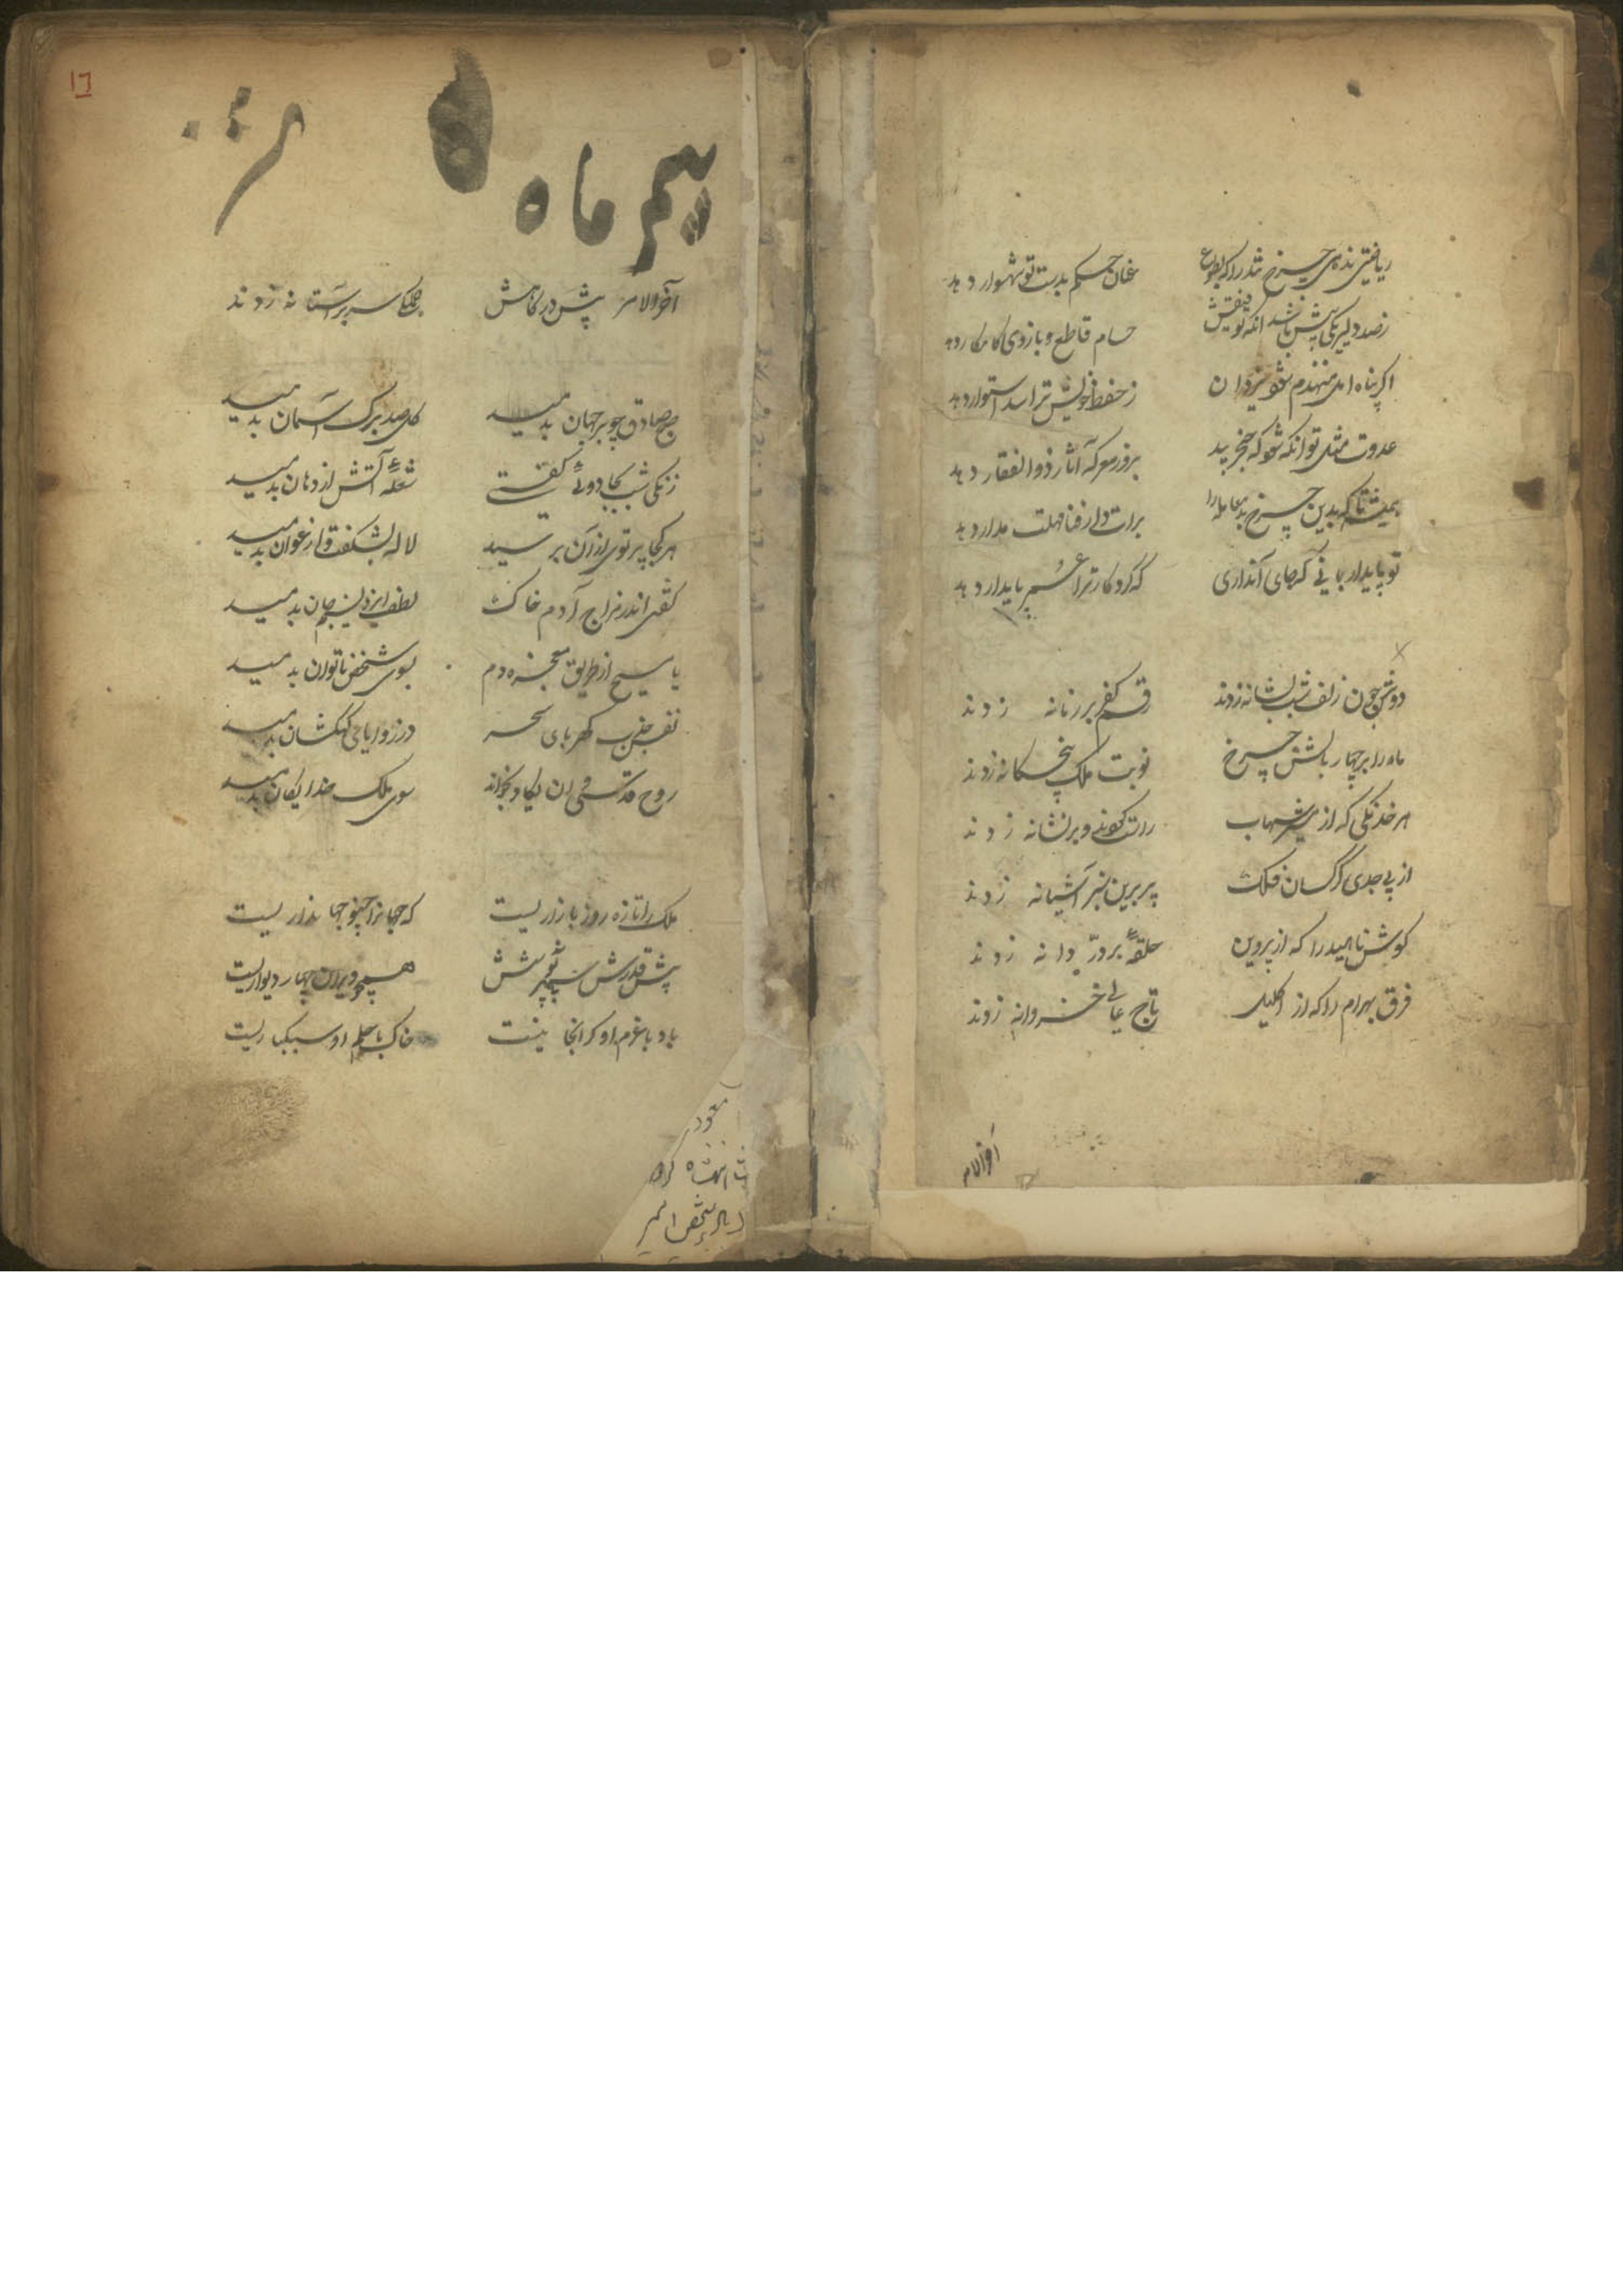 ریاضتی ندهی چرخ تند را که بطوع عنان حکم بدست تو شهسوار دهد
زصد دلیر یکی پیش باشد انکه حسام قاطع و بازوی کامکار دهد
اکر پناه امل منهدم شود یزدان زحفظ خویش ترا سد استوار دهد
عدوت مثل تو انکه شود که خنجر بید بروز معرکه آثار ذوالفقار دهد
همیشه تا که بدین چرخ بد معامله را برات دار فنا مهلت مدار دهد
تو پایدار بمانی که جای آنداری که کردکار ترا عمر پایدار دهد
دوش چون زلف شب بشانه زدند رقم کفر بر زمانه زدند
ماه را بر چهار بالش چرخ نوبت ملک پنجکانه زدند
هر خدنکی که از شهاب راست کوئی بر نشانه زدند
از پی جدی کرکسان فلک پر برین سبز آشیانه زدند
کوش ناهید را که از پروین حلقهٔ بر در دانه زدند
فرق بهرام را که از اکلیل تاج عالی خسروانه زدند
آخرالامر
۱۶
آخرالامر پیش درکاهش جمله سر بر آستانه زدند
صبح صادق چو بر جهان بدمید کل صد برک آسمان بدمید
زنکی شب بجادوئی کفتی شعلهٔ آتش از دهان بدمید
هر کجا پرتوی ازان برسید لاله بشکفت و ارغوان بدمید
کفتی اندر مزاج آدم خاک لطف ایزد نسیم جان بدمید
یا مسیح از طریق معجزه دم بسوی شخص ناتوان بدمید
نفس جذب کهربای سحر در زوایای کهکشان بدمید
روح قدسی ان یکاد بخواند سوی ملک خدایکان بدمید
ملک را تازه روز بازاریست که جهانرا چنو جهانداریست
پیش قدرش سپهر همچو ویران چهار دیواریست
باد با عزم او کرانجانیست خاک با حلم او سبکباریست